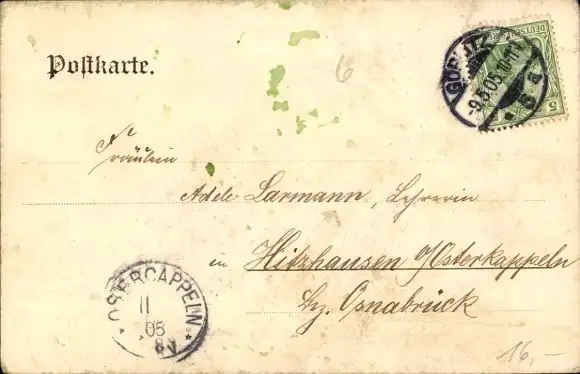 Postkarte.
6
DEUTSCHES
5
GÖRLITZ
-9.5.05.10-11V
* 3 a
Fräulein
Adele Larmann, Lehrerin
in Hitzhausen b/Osterkappeln
Bz. Osnabrück
* OSTERCAPPELN *
11
05
16,-